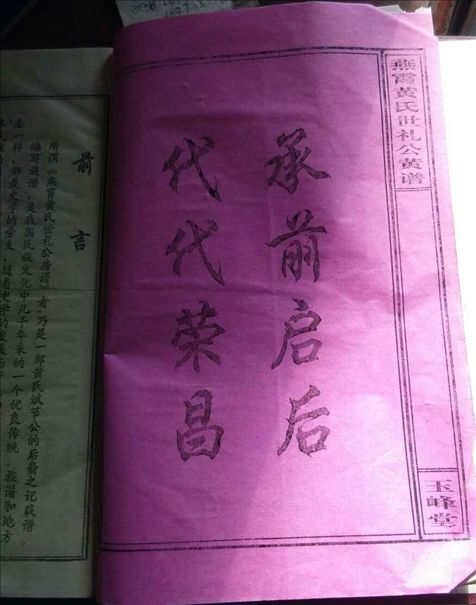 燕霄黄氏世礼公黄谱
玉峰堂
承前启后
代代荣昌
前言
所谓《燕霄黄氏世礼公房谱》者，乃是一部黄氏斌节公的后裔之记载谱。
编写族谱，是我国民族文化中几千年来的一个优良传统。族谱和地方
志一样，都是文字的专史，随着史学的发展